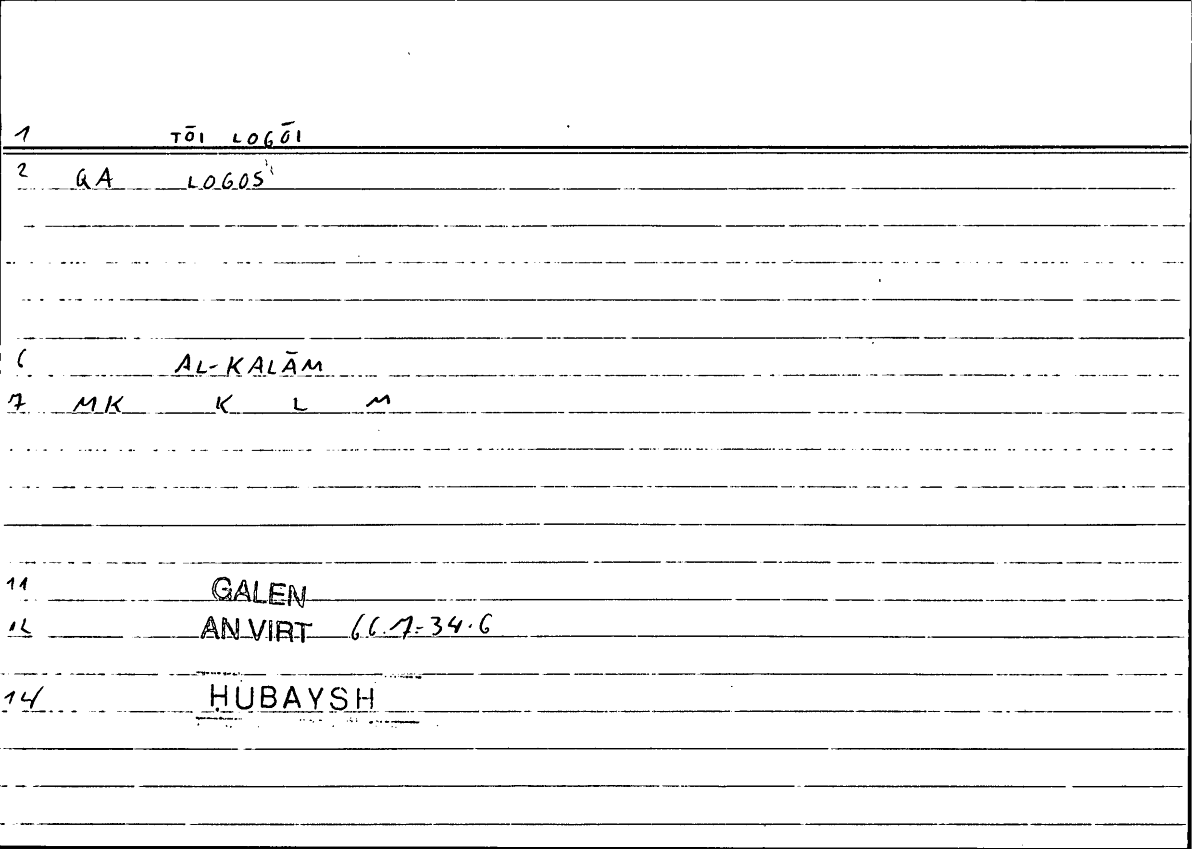 1 TŌI LOGŌI
2 QA LOGOS
6 AL-KALĀM
7 MK K L M
11 GALEN
12 AN VIRT 66.7=34.6
14 ḤUBAYSH